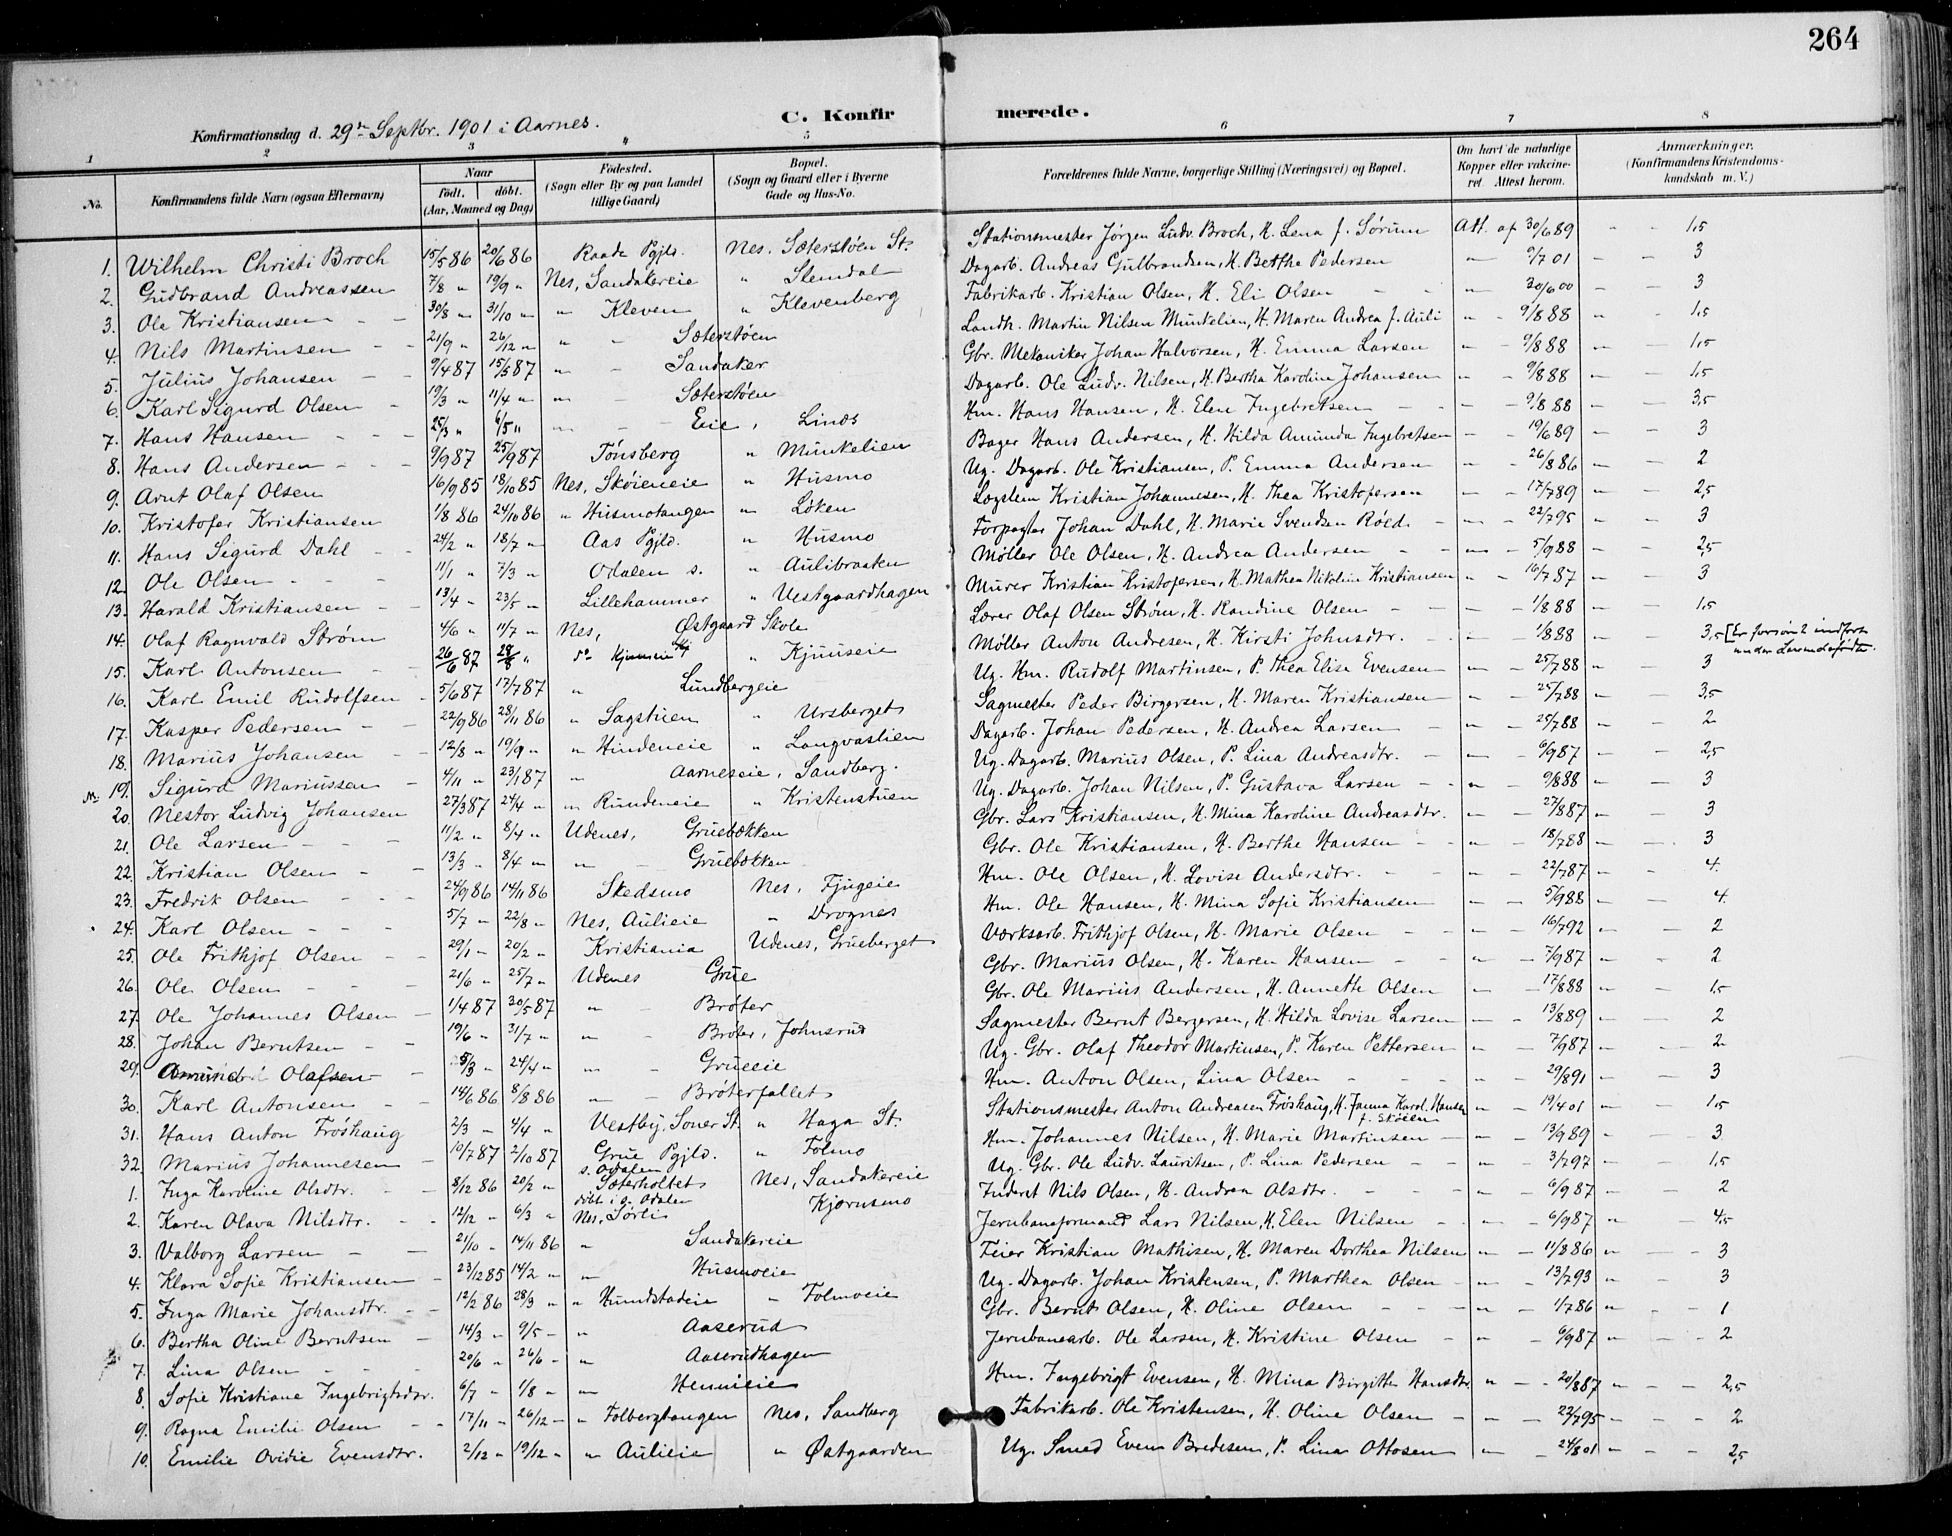 264
C. Konfirmerede.
Konfirmationsdag d. 29de Septbr. 1901 i Aarnes.
1 2 3 4 5 6 7 8
No. Konfirmandens fulde Navn (ogsaa Efternavn) Naar født. døbt. (Aar, Maaned og Dag) Fødested. (Sogn eller By og paa Landet tillige Gaard) Bopæl. (Sogn og Gaard eller i Byerne Gade og Hus-No. Forældrenes fulde Navne, borgerlige Stilling (Næringsvei) og Bopæl. Om havt de naturlige Kopper eller vakcineret. Attest herom. Anmærkninger. (Konfirmandens Kristendomskundskab m. V.)
1. Wilhelm Christi Broch 15/5 86 20/6 86 Raade Pgjld. Nes. Sæterstøen St. Stationsmester Jørgen Ludv. Broch, H. Lena f. Sørum Att. af 30/6 89 " " 1,5
2. Gudbrand Andreassen 7/8 " 19/9 " Nes, Sandakereie " Slemdal Dagarb. Andreas Gulbrandsen, H. Berthe Pedersen " 9/7 01 - - 3
3. Ole Kristiansen 30/8 " 31/10 " " Kleven " Klevenberg Fabrikarb. Kristian Olsen, H. Eli Olsen " 30/6 00 - - 3
4. Nils Martinsen 21/9 " 26/12 " " - Sæterstøen Landh. Martin Nilsen Munkelien, H. Maren Andrea f. Auli " - 9/8 88 " - 1,5
5. Julius Johansen 9/4 87 15/5 87 " - Sandaker Gbr. Mekaniker Johan Halvorsen, H. Emma Larsen " - 9/8 88 - - 1,5
6. Karl Sigurd Olsen 19/3 " 11/4 " " - Sæterstøen Dagarb. Ole Ludv. Nilsen, H. Bertha Karoline Johansen " - 9/8 88 - - 1,5
7. Hans Hansen 25/3 " 6/5 " " - Eie, Linds Hm. Hans Hansen, H. Elen Ingebretsen - - 9/8 88 - - 3,5
8. Hans Andersen 9/9 87 25/9 87 Tønsberg " Munkelien Bager Hans Andersen, H. Hilda Amunda Ingebretsen - - 19/6 89 - - 3
9. Arnt Olaf Olsen 16/9 85 18/10 85 Nes, Skøieneie " Husmo Ug. Dagarb. Ole Kristiansen, P. Emma Andersen - - 26/8 86 - - 2
10. Kristofer Kristiansen 1/8 86 24/10 86 " Husmotangen " Løken Lægslem Kristian Johannesen, H. Thea Kristofersen - - 17/7 89 - - 2,5
11. Hans Sigurd Dahl 24/2 " 18/7 " Aas Pgjld. " Husmo Forpagter Johan Dahl, H. Marie Svendsen Røed. - - 22/7 95 - - 3
12. Ole Olsen 11/1 " 7/3 " Odalen s. " Aulibraaten Møller Ole Olsen, H. Andrea Andersen - - 5/9 88 - - 2,5
13. Harald Kristiansen 13/4 " 23/5 " Lillehammer " Vestgaardhagen Murer Kristian Kristofersen, H. Mathea Nikoline Kristiansen " - 16/7 87 - - 3
14. Olaf Ragnvald Strøm 4/6 " 11/7 " Nes, Østgaard Skole Lærer Olaf Olsen Strøm, H. Randine Olsen - - 1/8 88 - - 1,5
15. Karl Antonsen 26/6 87 28/8 " do Kjuuseie " Kjuuseie Møller Anton Andresen, H. Kirsti Johnsdtr. - - 1/8 88 " - 3,5
16. Karl Emil Rudolfsen 5/6 87 17/7 87 " Lundbergeie Ug. Hm. Rudolf Martinsen, P. Thea Elise Evensen - - 25/7 88 " - 3
17. Kasper Pedersen 22/9 86 28/11 86 " Sagstuen " Ursberget Sagmester Peder Birgersen, H. Maren Kristiansen - - 25/7 88 - - 3,5
18. Marius Johansen 12/8 " 19/9 " " Hindeneie " Langvastien Dagarb. Johan Pedersen, H. Andrea Larsen - - 25/7 88 - - 2
19. Sigurd Mariussen 4/11 " 23/1 87 " Aarneseie, Sandberg. Ug. Dagarb. Marius Olsen, P. Lina Andreasdtr. - - 6/9 87 - - 2,5
20. Nestor Ludvig Johansen 27/3 87 24/4 " " Rundeneie " Kristenstuen Ug. Dagarb. Johan Nilsen, P. Gustava Larsen - - 9/8 88 - - 3
21. Ole Larsen 11/2 " 8/4 " Udenes, Gruebækken Gbr. Lars Kristiansen, H. Mina Karoline Andreasdtr. - - 27/8 87 - - 3
22. Kristian Olsen 13/3 " 8/4 " " - Gruebækken Gbr. Ole Kristiansen, H. Berthe Hansen - - 18/7 88 - - 3
23. Fredrik Olsen 24/9 86 14/11 86 Skedsmo Nes, Fjugeie Hm. Ole Olsen, H. Lovise Andersdtr. - - 22/7 87 - - 4.
24. Karl Olsen 5/7 " 22/8 " Nes, Aulieie " Drognes Hm. Ole Hansen, H. Mina Sofie Kristiansen - - 5/9 88 - - 4.
25. Ole Frithjof Olsen 29/1 " 20/2 " Kristiania Udenes, Grueberget Værksarb. Frithjof Olsen, H. Marie Olsen - - 16/7 92 - - 2
26. Ole Olsen 21/6 " 25/7 " Udenes Grue Gbr. Marius Olsen, H. Karen Hansen - - 7/9 87 - - 2
27. Ole Johannes Olsen 1/4 87 30/5 87 " - Brøter Gbr. Ole Marius Andersen, H. Annette Olsen " - 17/8 88 - - 1,5
28. Johan Berntsen 19/6 " 31/7 " " - Brøter, Johnsrud Sagmester Bernt Bergersen, H. Hilda Lovise Larsen - - 13/8 89 - - 2
29. Amund Olafsen 5/3 " 24/4 " " - Grueeie Ug. Gbr. Olaf Theodor Martinsen, P. Karen Pettersen - - 7/9 87 - - 2
30. Karl Antonsen 14/6 86 8/8 86 " - Brøterfallet Hm. Anton Olsen, Lina Olsen - - 29/8 91 - - 3
31. Hans Anton Frøshaug 2/3 " 4/4 " Vestby, Soner St. " Haga St. Stationsmester Anton Andreasen Frøshaug, H. Janna Karol. Hansen f. Skøien " - 19/4 01 - - 1,5
32. Marius Johannesen 10/7 87 2/10 87 Grue Pgjld. " Folmo Hm. Johannes Nilsen, H. Marie Martinsen - - 13/9 89 - - 3
1. Inga Karoline Olsdtr. 8/12 86 20/2 " s. Odalen Sæterholtet Nes, Sandakereie Ug. Gbr. Ole Ludv. Lauritsen, P. Lina Pedersen - - 3/7 97 - - 1,5
2. Karen Olava Nilsdtr. 12/12 " 6/3 " døbt i s. Odalen Nes, Sørli Kjørnsmo Inderst Nils Olsen, H. Andrea Olsdtr. - - 6/9 87 - - 2
3. Valborg Larsen 21/10 " 14/11 86 " Sandakereie Jernbaneformand Lars Nilsen, H. Elen Nilsen - - 6/9 87 " - 4,5
4. Klara Sofie Kristiansen 23/12 85 14/2 " " Husmoeie Feier Kristian Mathisen, H. Maren Dorthea Nilsen " - 11/8 86 - - 3
5. Inga Marie Johansdtr. 12/2 86 28/3 " " Hundstadeie " Folmoeie Ug. Dagarb. Johan Kristensen, P. Marthea Olsen - - 13/7 93 - - 3
6. Bertha Oline Berntsen 14/3 " 9/5 " " Aaserud Gbr. Bernt Olsen, H. Oline Olsen " - 1/7 86 " - 1
7. Lina Olsen 20/6 " 26/6 " " Aaserudhagen Jernbanearb. Ole Larsen, H. Kristine Olsen - - 6/9 87 - - 2
8. Sofie Kristiane Ingebrigtsdtr. 6/7 " 1/8 " " Hennieie Hm. Ingebrigt Evensen, H. Mina Birgitte Hansdtr. " - 20/8 87 - - 2,5
9. Ragna Emilie Olsen 17/11 " 26/12 " " Folbergtangen Nes, Sandberg Fabrikarb. Ole Kristensen, H. Oline Olsen - - 22/7 95 - - 2
10. Emilie Ovidie Evensdtr. 2/12 " 19/12 " " Aulieie " Østgaarden Ug. Smed Even Bredesen, P. Lina Ottosen " - 24/8 01 - - 2,5